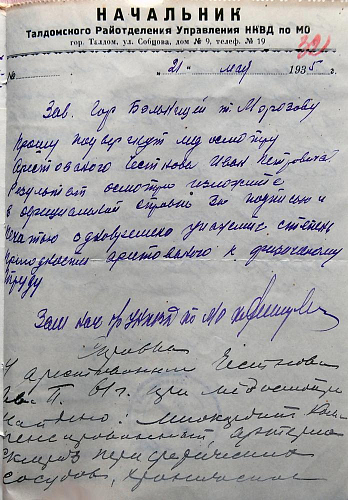 НАЧАЛЬНИК
Талдомского Райотделения Управления НКВД по МО
гор. Талдом, ул. Собцова, дом № 9, телеф. № 19
321
№ 21 " мая 1935 г.
Зав. Гор Больницей т. Морозову
Прошу подвергнуть медосмотру
Арестованного Честнова Иван Петровича
Результат осмотра изложите
в официальной справке за подписью и
печатью одновременно укажите степень
пригодности арестованного к физическому
труду
Зам нач НКВД по МО
Справка
У арестованного Честнова
Ив. П. 61 г. при медосмотре
найдено: миокардит ком
пенсированный, артерио
склероз периферических
сосудов, хронические